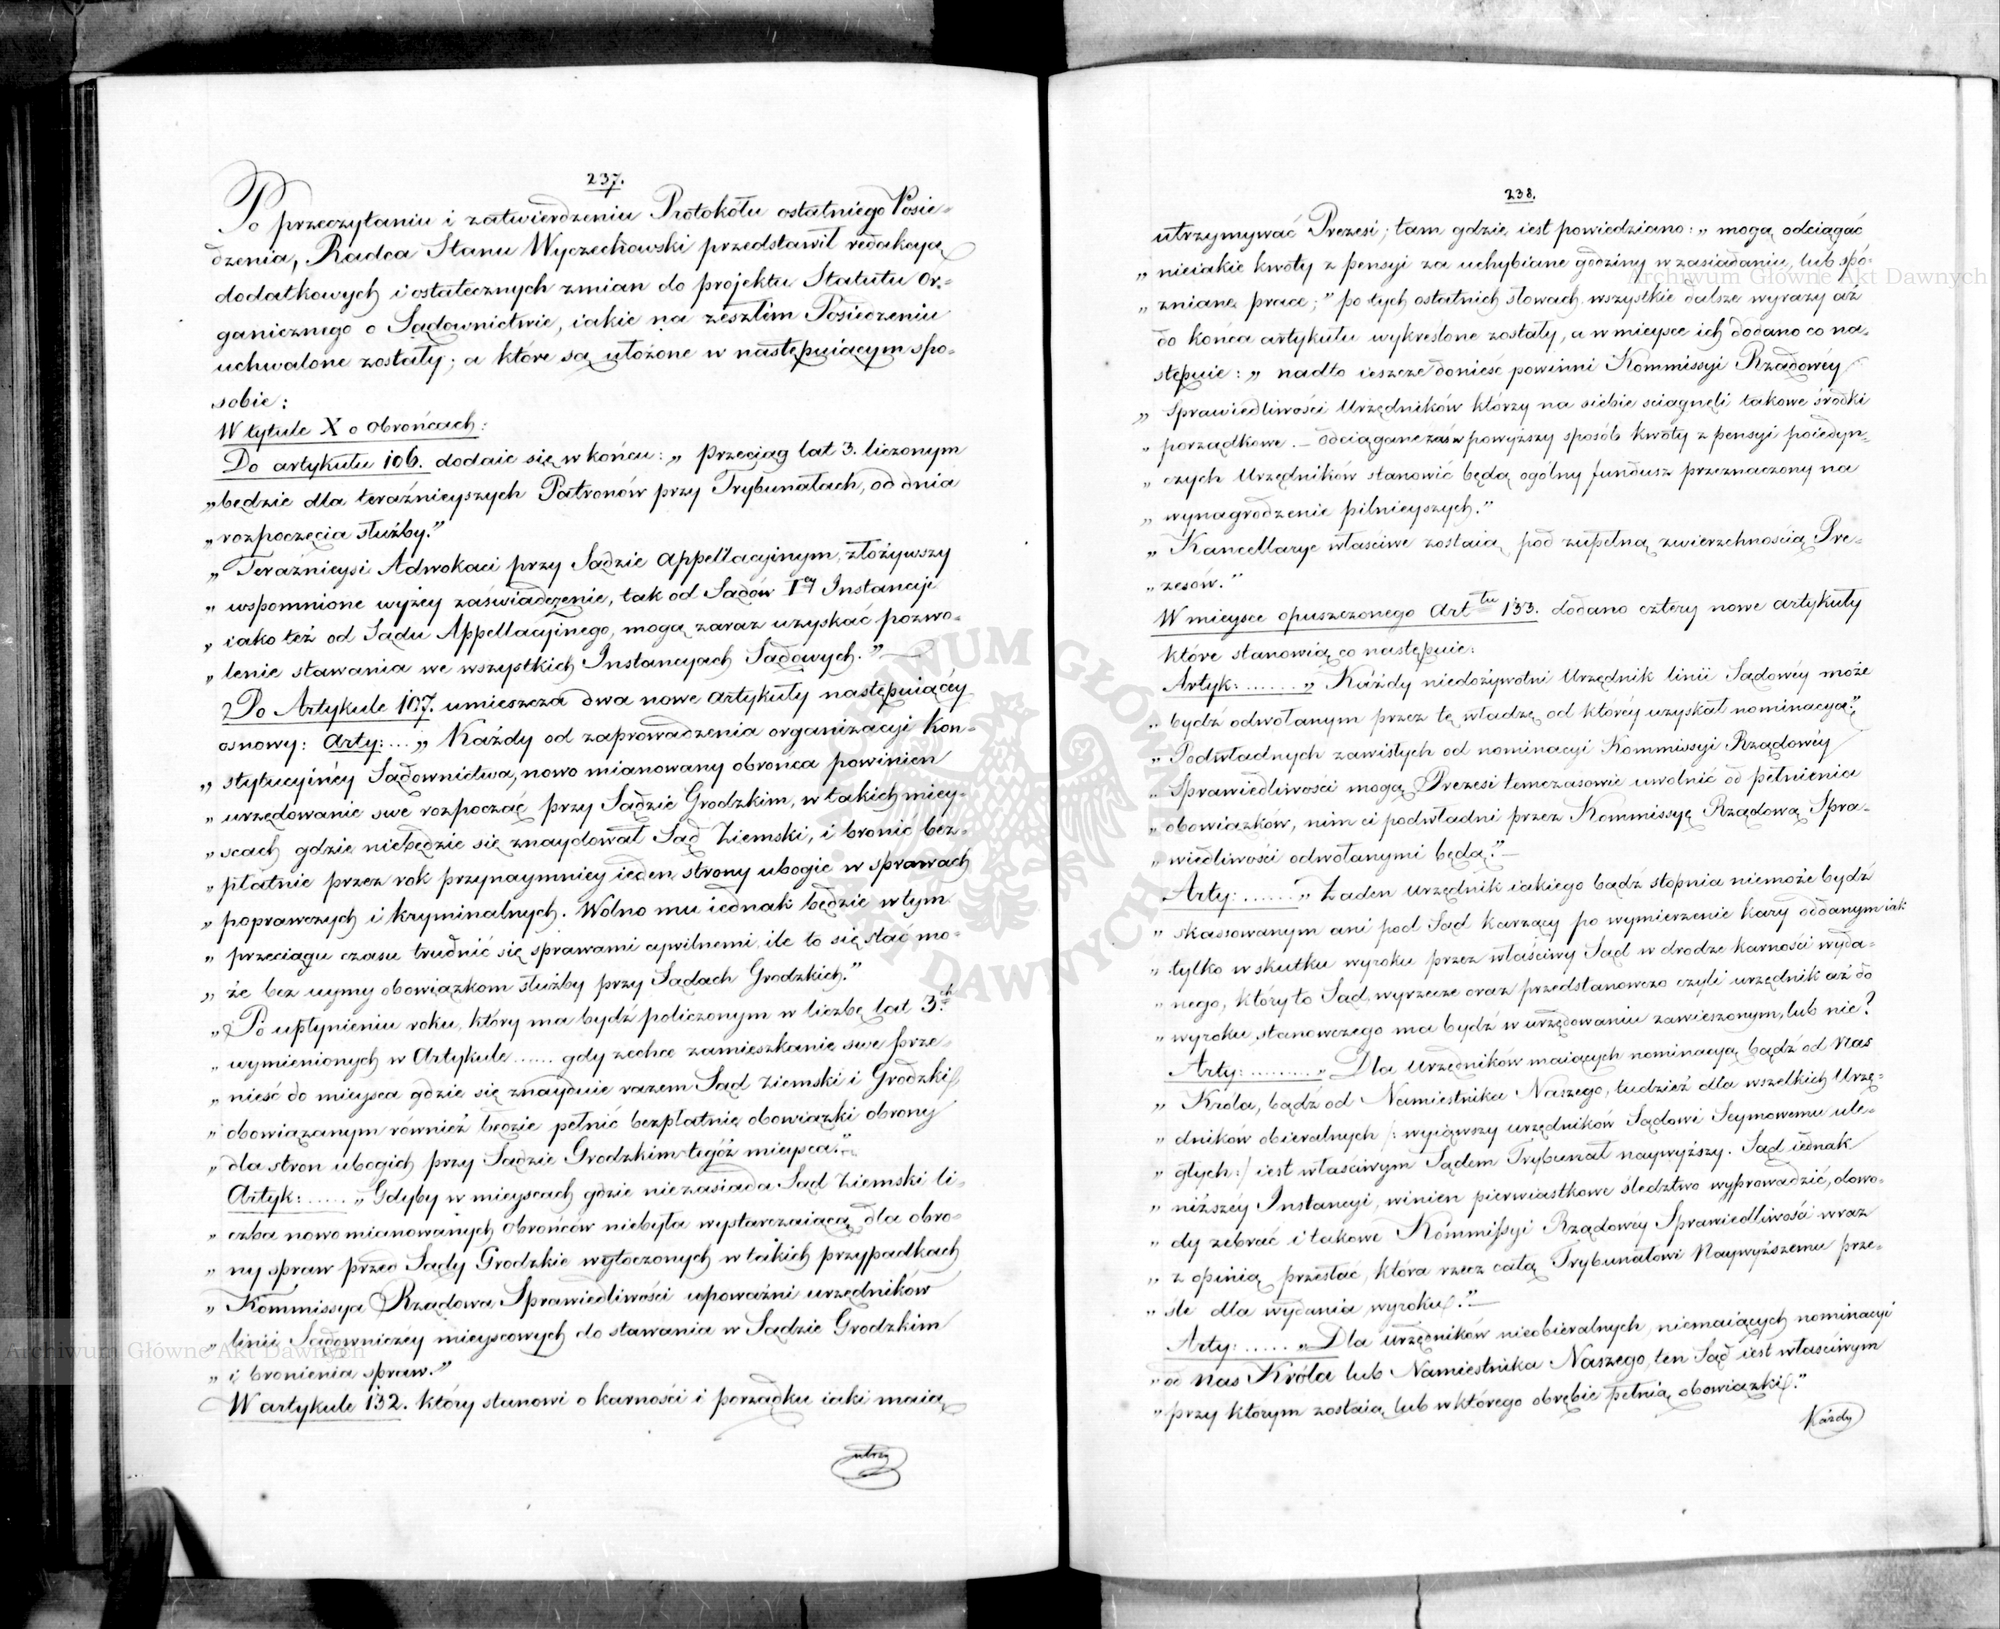 237.
Po przeczytaniu i zatwierdzeniu Protokołu ostatniego Posie-
dzenia, Radca Stanu Wyczechowski przedstawił redakcyą
dodatkowych i ostatecznych zmian do projektu Statutu Or-
ganicznego o Sądownictwie, iakie na zeszłém Posiedzeniu
uchwalone zostały; a które są ułożone w następuiącym spo-
sobie:
W tytule X o Obrońcach:
Do artykułu 106. dodaie się w końcu: „ Przeciąg lat 3. liczonym
„ będzie dla teraźnieyszych Patronów przy Trybunałach, od dnia
„ rozpoczęcia służby."
„ Teraźnieysi Adwokaci przy Sądzie Appellacyinym, złożywszy
„ wspomnione wyżey zaświadczenie, tak od Sądów Iéy Instancji
„ iako też od Sądu Appellacyinego, mogą zaraz uzyskać pozwo-
„ lenie stawania we wszystkich Instancyach Sądowych." —
Po Artykule 107. umieszcza dwa nowe artykuły następuiącéy
osnowy: Arty: ... „ Każdy od zaprowadzenia organizacyi kon-
„ stytucyinéy Sądownictwa, nowo mianowany obrońca powinien
„ urzędowanie swe rozpocząć przy Sądzie Grodzkim, w takich miey-
„ scach gdzie niebędzie się znaydował Sąd Ziemski, i bronić bez-
„ płatnie przez rok przynaymniey ieden, strony ubogie w sprawach
„ poprawczych i kryminalnych. Wolno mu iednak będzie w tym
„ przeciągu czasu trudnić się sprawami cywilnemi, ile to się stać mo-
„ że bez uymy obowiązkom służby przy Sądach Grodzkich."
„ Po upłynieniu roku, który ma bydź policzonym w liczbę lat 3ch
„ wymienionych w Artykule ...... gdy zechce zamieszkanie swe prze-
„ nieść do mieysca gdzie się znayduie razem Sąd Ziemski i Grodzki,
„ obowiązanym również będzie pełnić bezpłatnie obowiązki obrony
„ dla stron ubogich przy Sądzie Grodzkim tegóż mieysca."
Artyk: ..... „ Gdyby w mieyscach gdzie niezasiada Sąd Ziemski li-
„ czba nowo mianowanych Obrońców niebyła wystarczaiącą dla obro-
„ ny spraw przed Sądy Grodzkie wytoczonych w takich przypadkach
„ Kommissya Rządowa Sprawiedliwości upoważni urzędników
„ linii Sądowniczéy mieyscowych do stawania w Sądzie Grodzkim
„ i bronienia spraw."
W artykule 132. który stanowi o karności i porządku iaki maią
utrzy
238.
utrzymywać Prezesi; tam gdzie iest powiedziano: „ mogą odciągać
„ nieiakie kwoty z pensyi za uchybiane godziny w zasiadaniu, lub spó-
„ źniane prace;" po tych ostatnich słowach wszystkie dalsze wyrazy aż
do końca artykułu wykreślone zostały, a w mieysce ich dodano co na-
stępuie: „ nadto ieszcze donieść powinni Kommissyi Rządowéy
„ Sprawiedliwości Urzędników którzy na siebie sciągnęli takowe środki
„ porządkowe. — Odciągane zaś w powyższy sposób kwoty z pensyi poiedyn-
„ czych Urzędników stanowić będą ogólny fundusz przeznaczony na
„ wynagrodzenie pilnieyszych."
„ Kancellarye właściwe zostaią pod zupełną zwierzchnością Pre-
„ zesów."
W mieysce opuszczonego Arttu 133. dodano cztery nowe artykuły
które stanowią co następuie:
Artyk: ...... „ Każdy niedożywotni Urzędnik linii Sądowéy może
„ bydź odwołanym przez tę władzę od któréy uzyskał nominacyą."
„ Podwładnych zawisłych od nominacyi Kommissyi Rządowéy
„ Sprawiedliwości mogą Prezesi tymczasowie uwolnić od pełnienia
„ obowiązków, nim ci podwładni przez Kommissyę Rządową Spra-
„ wiedliwości odwołanymi będą." —
Arty: ...... „ Żaden Urzędnik iakiego bądź stopnia niemoże bydź
„ skassowanym ani pod Sąd karzący po wymierzenie kary oddanym iak
„ tylko w skutku wyroku przez właściwy Sąd w drodze karności wyda-
„ nego, który to Sąd, wyrzecze oraz przedstanowczo czyli urzędnik aż do
„ wyroku stanowczego ma bydź w urzędowaniu zawieszonym, lub nie?
Arty: ......... „ Dla Urzędników maiących nominacyą bądź od Nas
„ Króla, bądź od Namiestnika Naszego, tudzież dla wszelkich Urzę-
„ dników obieralnych /: wyiąwszy urzędników Sądowi Seymowemu ule-
„ głych :/ iest właściwym Sądem Trybunał naywyższy. Sąd iednak
„ niższéy Instancyi, winien pierwiastkowe śledztwo wyprowadzić, dowo-
„ dy zebrać i takowe Kommissyi Rządowéy Sprawiedliwości wraz
„ z opinią przesłać, która rzecz całą Trybunałowi Naywyższemu prze-
„ śle dla wydania wyroku." —
Arty: ..... „ Dla urzędników nieobieralnych, niemaiących nominacyi
„ od Nas Króla lub Namiestnika Naszego, ten Sąd iest właściwym
„ przy którym zostaią, lub w którego obrębie pełnią obowiązki."
Każdy
Archiwum Główne Akt Dawnych
Archiwum Główne Akt Dawnych
ARCHIWUM GŁÓWNE AKT DAWNYCH